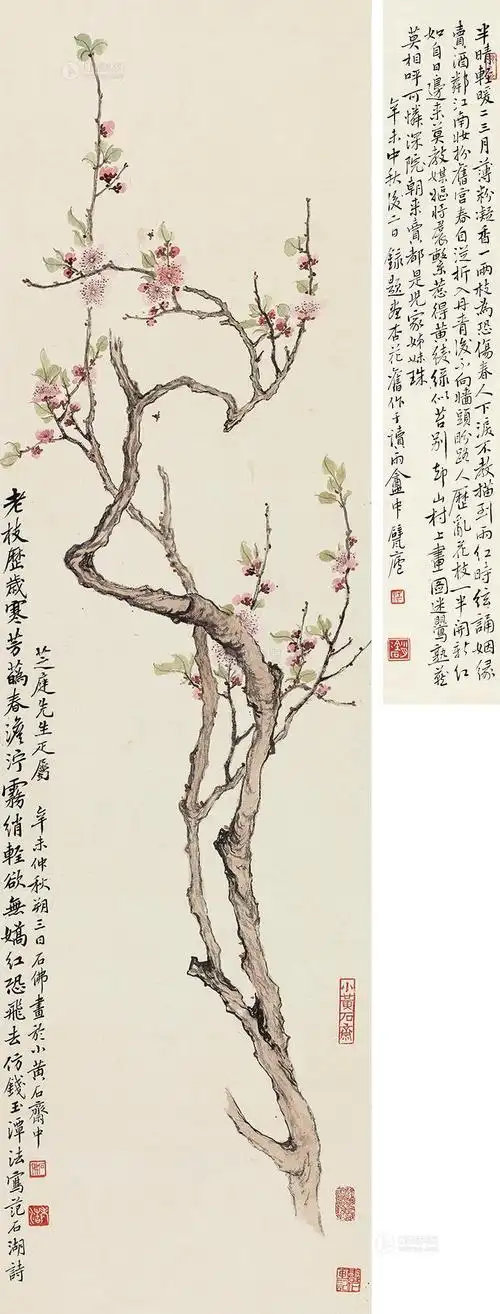 半晴輕暖二三月薄粉凝香一兩枝為恐傷春人下淚不教描到雨紅時絃誦姻緣
賣酒鄰江南妝扮舊宮春自從折入丹青後不向牆頭盼路人歷亂花枝一半開新紅
如自日邊来莫教媒嫗將裙繫惹得黃綾綠似苔別却山村上畫圖迷鶯熟
莫相呼可憐深院朝来賣都是兒家姊妹珠
辛未中秋後二日錄題畫杏花舊作于讀雨龕中
老枝歷歲寒芳蘤春澹泞霧綃輕欲無嬌紅恐飛去仿錢玉潭法寫范石湖詩
芝庭先生疋屬 辛未仲秋朔三日石佛畫於小黃石齋中
小黃石齋